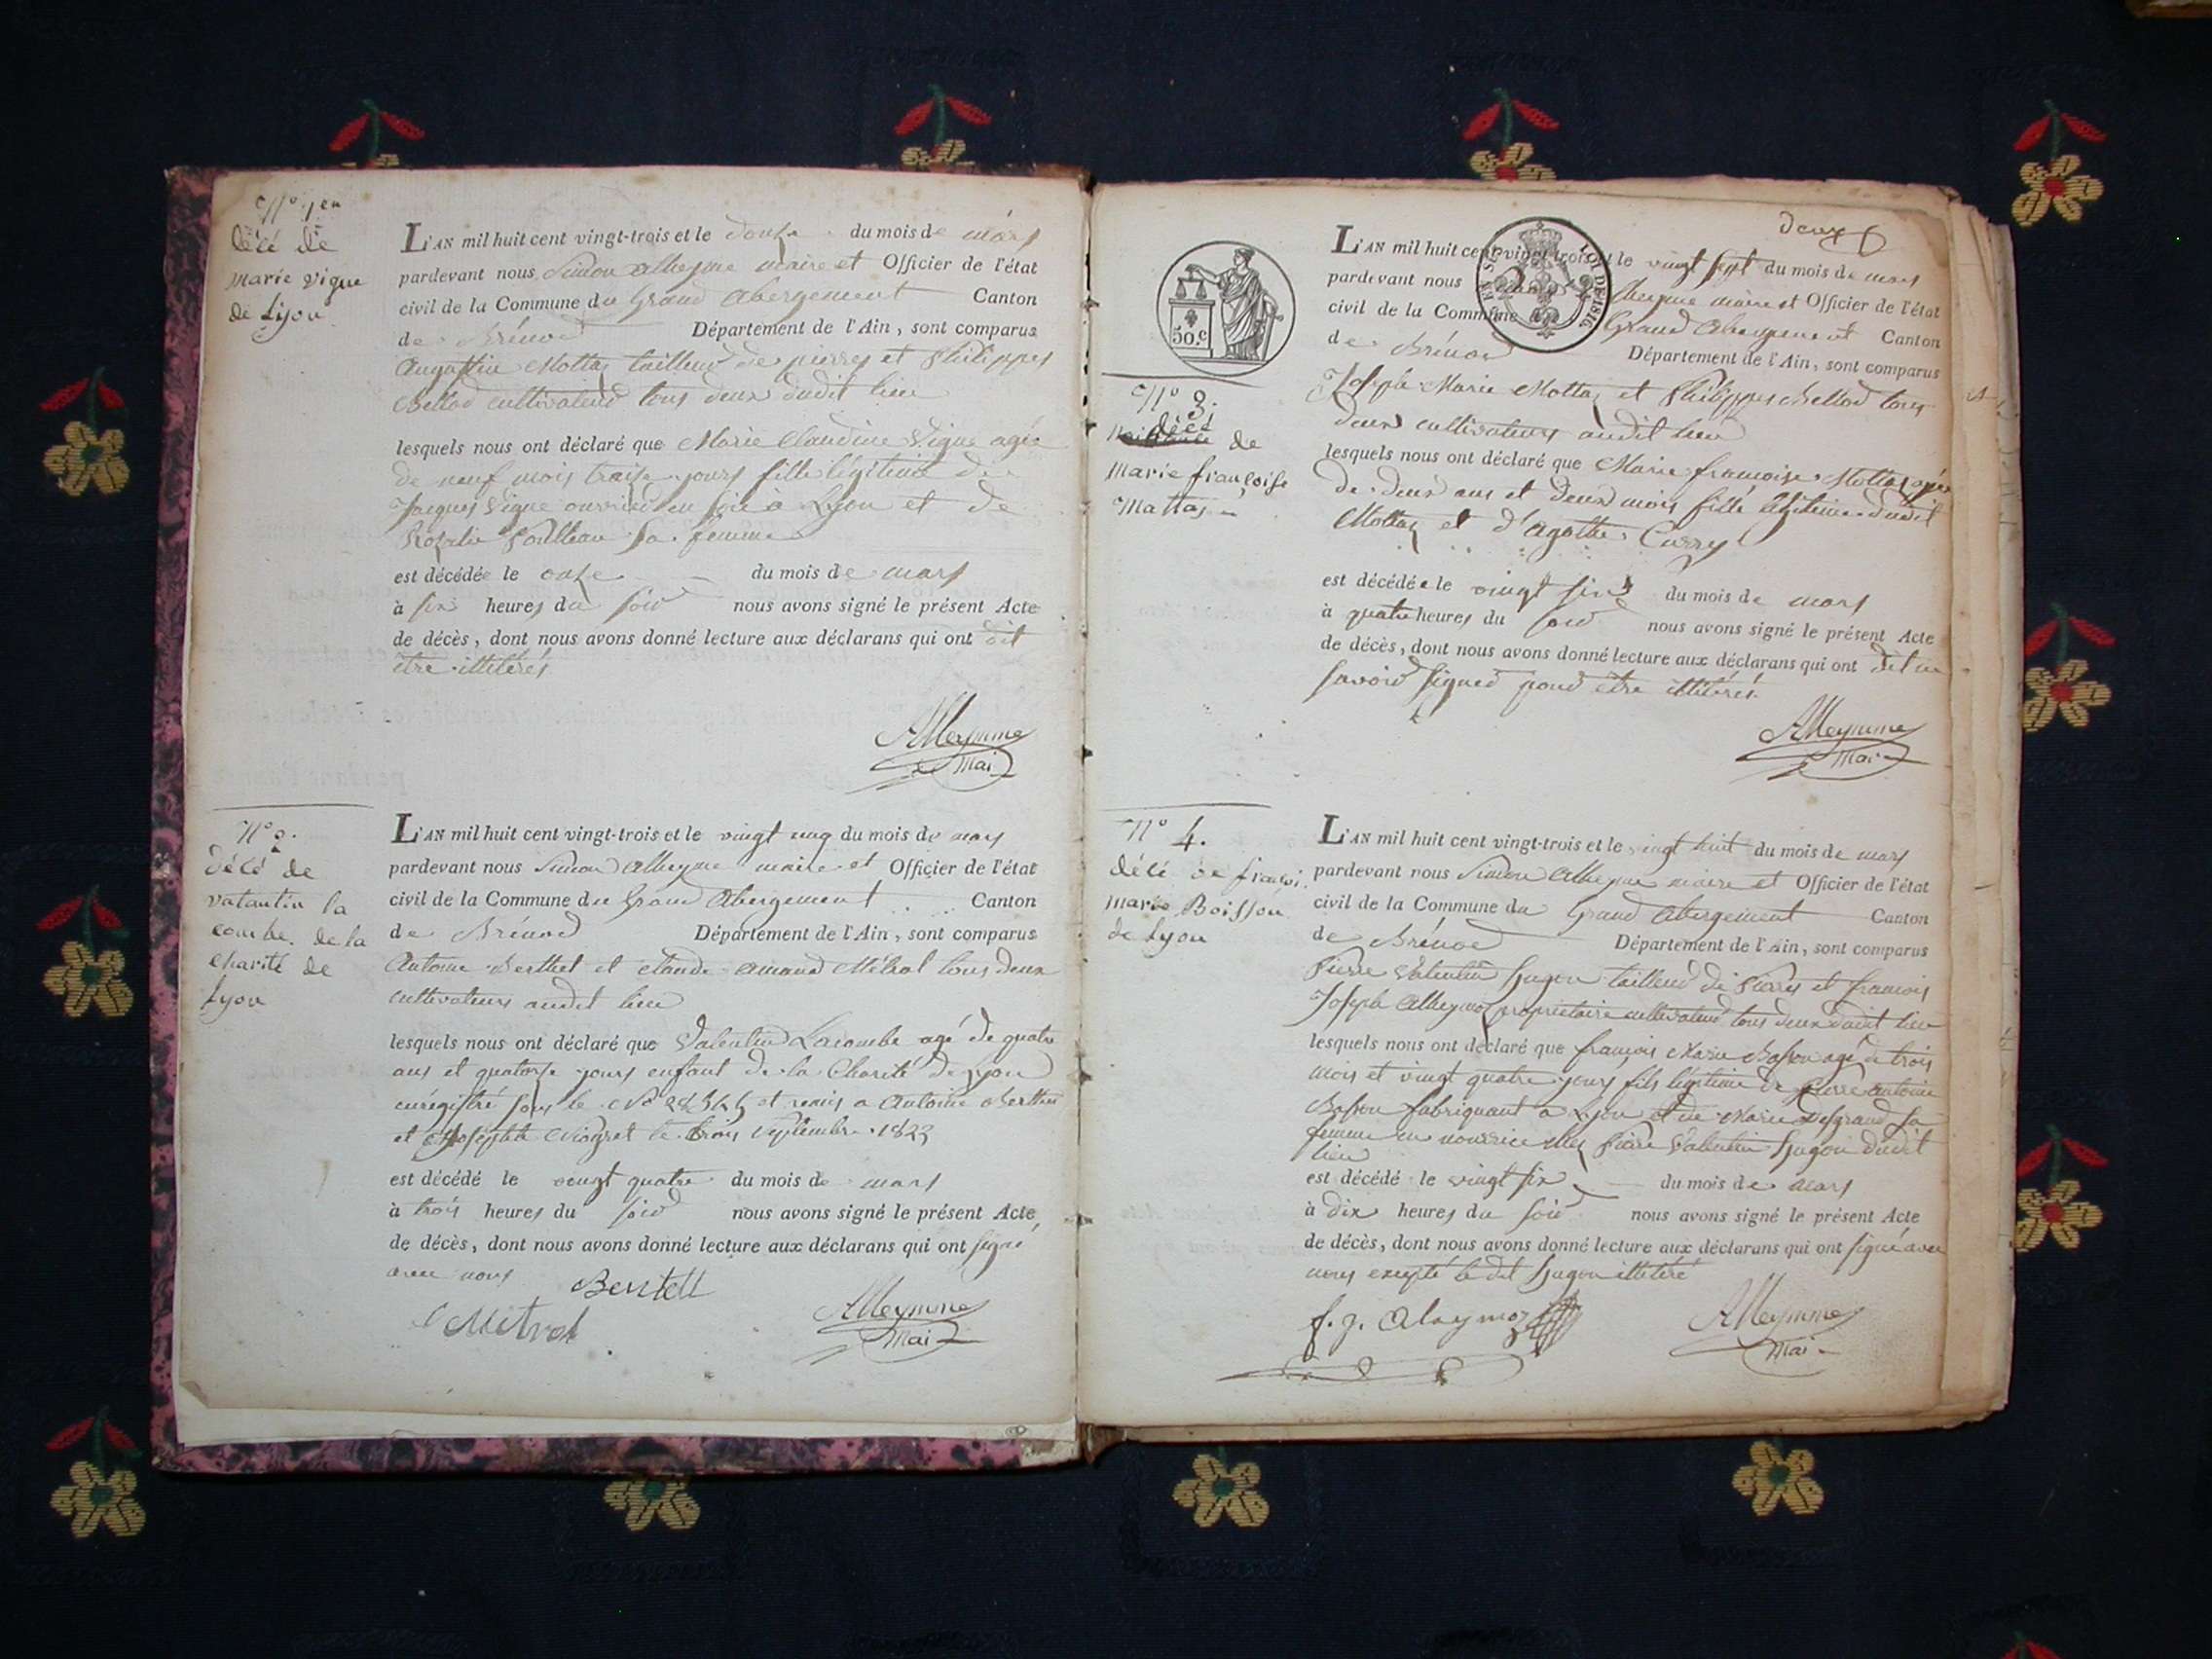 N.º 1er
décé de
marie vigue
de Lyon
L'AN mil huit cent vingt-trois et le douze du mois de mars
pardevant nous Simon alleyme maire et Officier de l'état
civil de la Commune du Grand abergement Canton
de Brénod Département de l'Ain, sont comparus
Augustin Mottaz tailleur de pierres et Philippes
Bellod cultivateur tous deux dudit lieu
lesquels nous ont déclaré que Marie Claudine Vigue agée
de neuf mois traize jours fille légitime de
Jacques Vigue ouvrier en soie à Lyon et de
Rozalie sa femme
est décédée le onze du mois de mars
à six heures du soir nous avons signé le présent Acte
de décès, dont nous avons donné lecture aux déclarans qui ont dit
être illitérés
Alleymme
Mai
N.º 2.
décé de
valantin la
combe de la
charité de
Lyon
L'AN mil huit cent vingt-trois et le vingt cinq du mois de mars
pardevant nous Simon alleyme maire et Officier de l'état
civil de la Commune du Grand Abergement Canton
de Brénod Département de l'Ain, sont comparus
Antoine Berthet et claude amand Métral tous deux
cultivateurs audit lieu
lesquels nous ont déclaré que Valentin Lacombe agé de quatre
ans et quatorze jours enfant de la Charité de Lyon
enrégistré sous le Nº et remis a Antoine Berthet
et Josephte le trois septembre 1823
est décédé le vingt quatre du mois de mars
à trois heures du soir nous avons signé le présent Acte
de décès, dont nous avons donné lecture aux déclarans qui ont signé
avec nous
Bertett
C Metral
Alleymme
Mai
deux
50.c
EN SUS
LOI DE 1816.
N.º 3.
décé
Naissance de
marie françoise
Mattaz
L'AN mil huit cent vingt-trois et le vingt sept du mois de mars
pardevant nous Simon alleyme maire et Officier de l'état
civil de la Commune du Grand Abergement Canton
de Brénod Département de l'Ain, sont comparus
Joseph Marie Mottaz et Philippes Bellod tous
deux cultivateurs audit lieu
lesquels nous ont déclaré que Marie françoise Mottaz agée
de deux ans et deux mois fille légitime dudit
Mottaz et d'agathe Carry
est décédée le vingt six du mois de mars
à quatre heures du soir nous avons signé le présent Acte
de décès, dont nous avons donné lecture aux déclarans qui ont dit ne
savoir signer pour être illitérés.
Alleymme
Mai
N.º 4.
décé de françoi.
marie Boisson
de Lyon
L'AN mil huit cent vingt-trois et le vingt huit du mois de mars
pardevant nous Simon Alleyme maire et Officier de l'état
civil de la Commune du Grand Abergement Canton
de Brénod Département de l'Ain, sont comparus
Pierre Valentin hugon tailleur de Pierres et francois
Joseph Alleymoz propriétaire cultivateur tous deux dudit lieu
lesquels nous ont déclaré que françois Marie Boson agé de trois
mois et vingt quatre jours fils légitime de pierre antoine
Boson fabriquant a Lyon et de Marie Desgrand sa
femme en nourrice chez Pierre Valentin hugon dudit
lieu
est décédé le vingt six du mois de mars
à dix heures du soir nous avons signé le présent Acte
de décès, dont nous avons donné lecture aux déclarans qui ont signé avec
nous excepté le dit hugon illitéré
f. j. Alaymoz
Alleymme
Mai